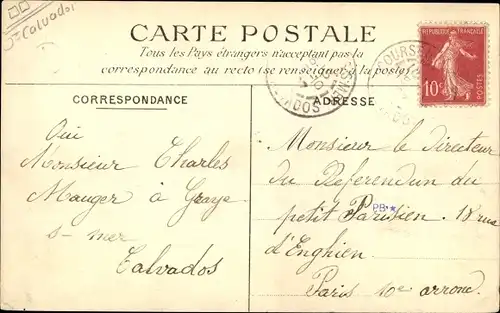 Calvados
CARTE POSTALE
Tous les Pays étrangers n'acceptent pas la
correspondance au recto (se renseigner à la poste)
REPUBLIQUE FRANÇAISE
10c
POSTES
CORRESPONDANCE
ADRESSE
Oui
Monsieur Charles
Mauger à Graye
s-mer
Calvados
Monsieur le Directeur
du Referendum du
petit Parisien. 18 rue
d'Enghien
Paris 10e arrond.
PB★